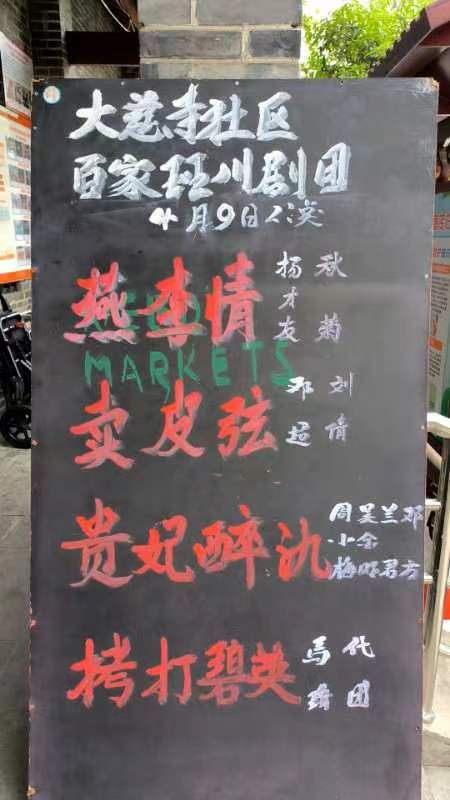 大慈寺社区
百家班川剧团
4月9日公演
燕李情 杨才友 秋菊
MARKETS
卖皮弦 邓超 刘倩
贵妃醉氿 周吴兰邓
小
梅君方
拷打碧英 馬 代
团